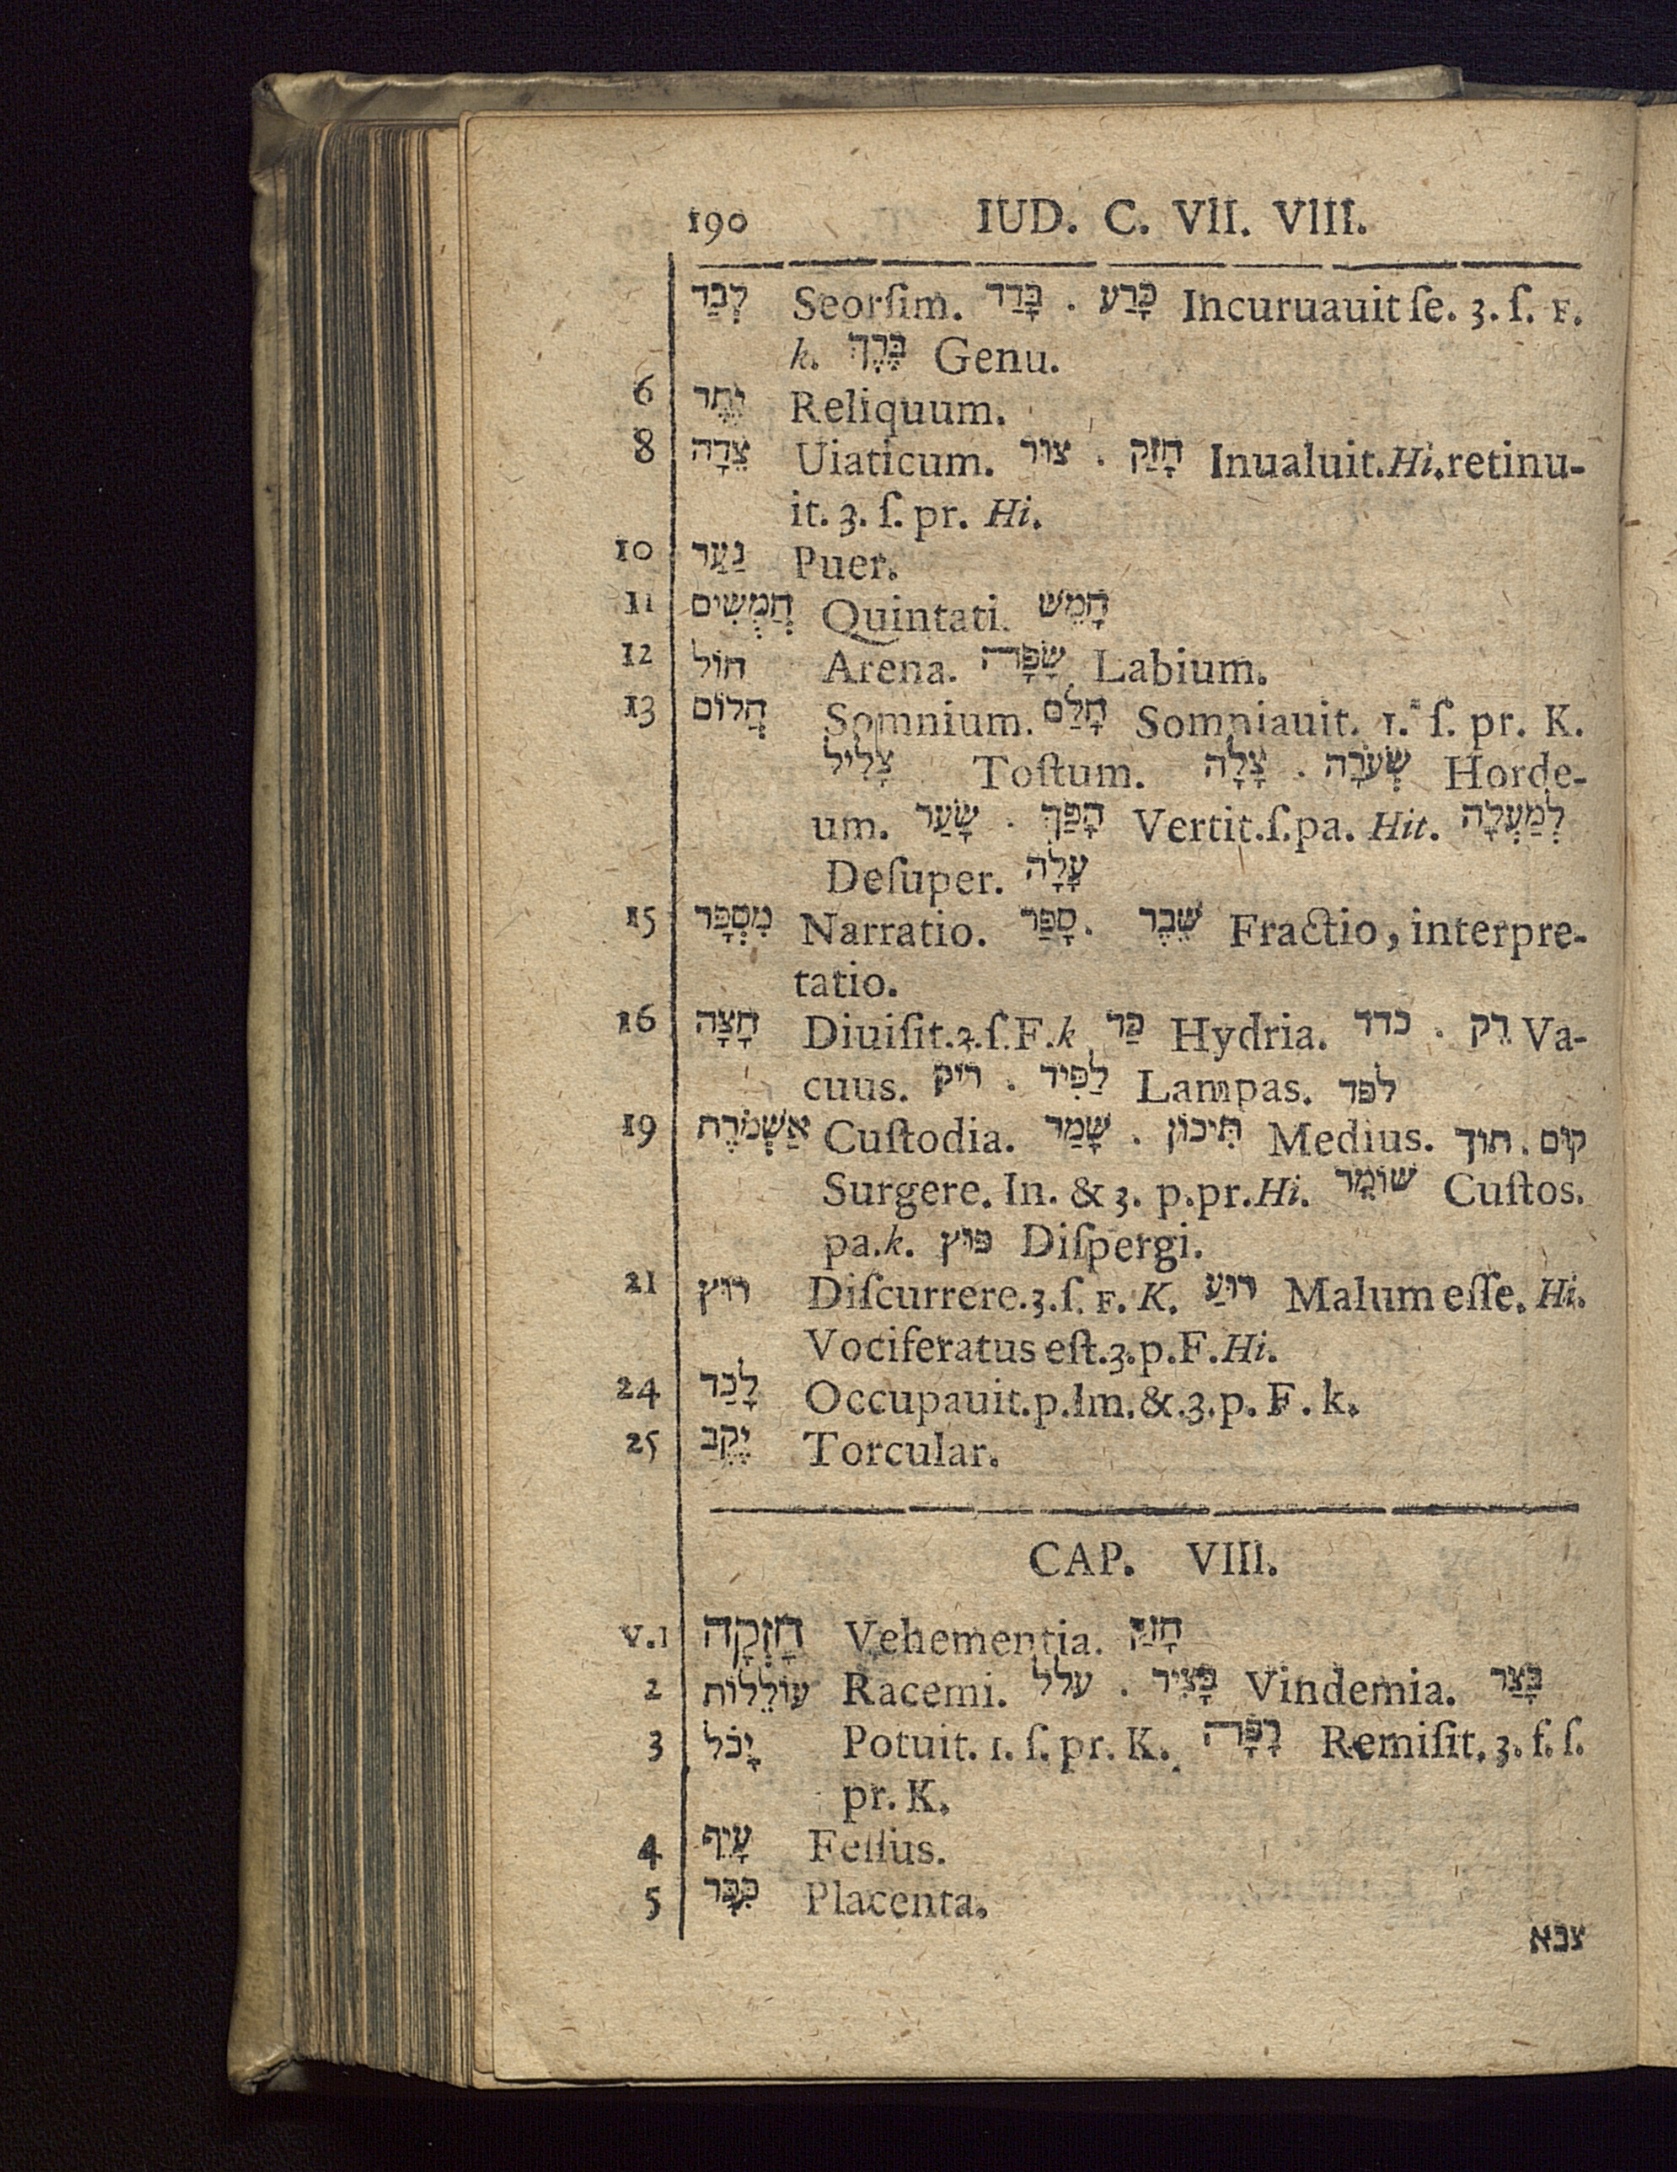 190 IUD. C. VII. VIII.
לְבַד Seorſim. בָּדַד . כָּרַע Incuruauit ſe. 3. ſ. F.
k. בֶּרֶךְ Genu.
6 יֶתֶר Reliquum.
8 צֵדָה Uiaticum. צור . חָזַק Inualuit. Hi. retinu-
it. 3. ſ. pr. Hi.
10 נַעַר Puer.
11 חֲמֻשִׁים Quintati. חָמֵשׁ
12 חוֹל Arena. שָׂפָה Labium.
13 חֲלוֹם Somnium. חָלַם Somniauit. 1. ſ. pr. K.
צָלִיל Toſtum. צָלָה . שְׂעֹרָה Horde-
um. שָׂעַר . הָפַךְ Vertit. ſ. pa. Hit. לְמַעְלָה
Deſuper. עָלָה
15 מִסְפָּר Narratio. סָפַר . שֶׁבֶר Fractio, interpre-
tatio.
16 חָצָה Diuiſit. 3. ſ. F. k כַּד Hydria. כדד . רֵק Va-
cuus. רִיק . לַפִּיד Lampas. לפד
19 אַשְׁמֹרֶת Cuſtodia. שָׁמַר . תִּיכוֹן Medius. תוך . קום
Surgere. In. & 3. p. pr. Hi. שׁוֹמֵר Cuſtos.
pa. k. פוץ Diſpergi.
21 רוץ Diſcurrere. 3. ſ. F. K. רוּעַ Malum eſſe. Hi.
Vociferatus eſt. 3. p. F. Hi.
24 לָכַד Occupauit. p. Im. &. 3. p. F. k.
25 יֶקֶב Torcular.
CAP. VIII.
V. 1 חָזְקָה Vehementia. חָזַק
2 עוֹלֵלוֹת Racemi. עלל . בָּצִיר Vindemia. בָּצַר
3 יָכֹל Potuit. 1. ſ. pr. K. רָפָה Remiſit. 3. f. ſ.
pr. K.
4 עָיֵף Feſſus.
5 כִּכָּר Placenta.
צבא